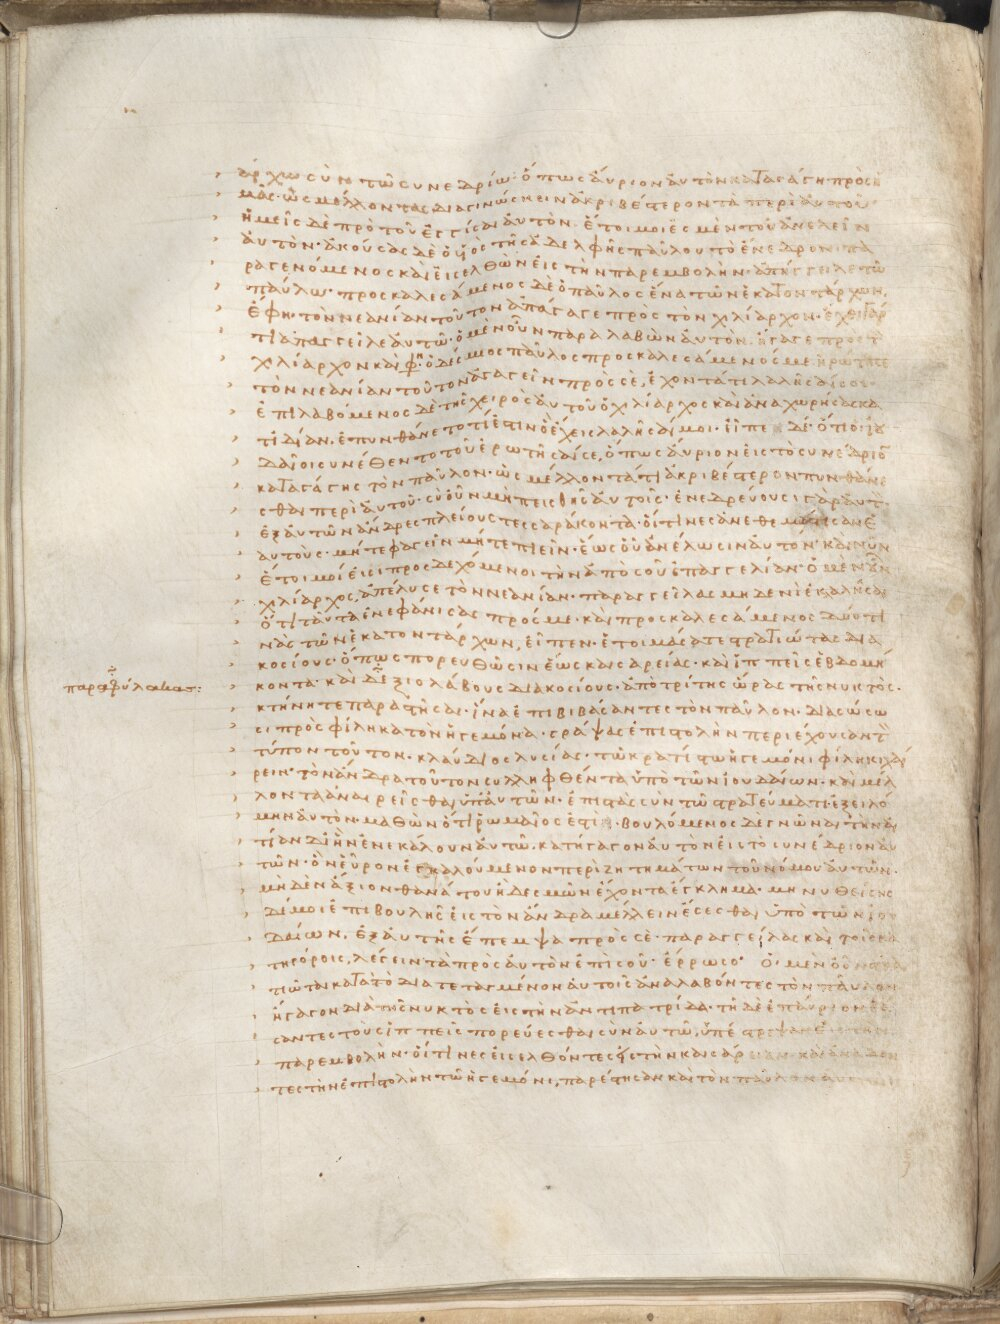 άρχω σὺν τῶ συνεδρίω· ὅπως αὔριον αὐτὸν καταγάγη πρὸς ὑ
μᾶς· ὡς μέλλοντας διαγινώσκειν ἀκριβέστερον τὰ περὶ αὐτοῦ·
ἡμεῖς δὲ πρὸ τοῦ ἐγγίσαι αὐτὸν· ἕτοιμοί ἐσμὲν τοῦ ἀνελεῖν
αὐτὸν· ἀκούσας δὲ ὁ υἱὸς τῆς ἀδελφῆς παύλου τὸ ἔνεδρον· πα
ραγενόμενος καὶ εἰσελθὼν εἰς τὴν παρεμβολὴν· ἀπήγγειλε τῶ
παύλω· προσκαλεσάμενος δὲ ὁ παῦλος ἕνα τῶν ἑκατοντάρχων,
ἔφη· τὸν νεανίαν τοῦτον ἀπάγαγε πρὸς τὸν χιλίαρχον· ἔχει γάρ
τι ἀπαγγεῖλε αὐτῶ· ὁ μὲν οὖν παραλαβὼν αὐτὸν ἤγαγε πρὸς τ
χιλίαρχον καὶ φησὶν· ὁ δέσμιος παῦλος προσκαλεσάμενός με ἠρώτησε
τὸν νεανίαν τοῦτον ἀγαγεῖν πρὸς σὲ, ἔχοντά τι λαλῆσαί σοι·
ἐπιλαβόμενος δὲ τῆς χειρὸς αὐτοῦ ὁ χιλίαρχος καὶ ἀναχωρήσας κα
τιδίαν. ἐπυνθάνετο τί ἐστιν ὃ ἔχεις λαλῆσαί μοι· εἶπε δέ· ὅτι οἱ ἰου
δαῖοι συνέθεντο τοῦ ἐρωτῆσαί σε, ὅπως αὔριον εἰς τὸ συνέδριον
καταγάγης τὸν παῦλον· ὡς μέλλοντά τι ἀκριβέστερον πυνθάνε
σθαι περὶ αὐτοῦ· σὺ οὖν μὴ πεισθῆς αὐτοῖς· ἐνεδρεύουσι γὰρ αὐτὸ
ἐξ αὐτῶν ἄνδρες πλείους τεσσαράκοντα· οἵτινες ἀνεθεμάτισαν ἑ
αυτοὺς· μήτε φαγεῖν μήτε πιεῖν· ἕως οὗ ἀνέλωσιν αὐτόν· καὶ νῦν
ἕτοιμοί εἰσι προσδεχόμενοι τὴν ἀπὸ σοῦ ἐπαγγελίαν· ὁ μὲν οὖν
χιλίαρχος, ἀπέλυσε τὸν νεανίαν· παραγγείλας μηδενὶ ἐκλαλῆσαι
ὅτι ταῦτα ἐνεφάνισας πρός με· καὶ προσκαλεσάμενος δύο τι
νὰς τῶν ἑκατοντάρχων, εἶπεν· ἑτοιμάσατε στρατιώτας δια
κοσίους· ὅπως πορευθῶσιν ἕως καισαρείας· καὶ ἱππεῖς ἑβδομή
κοντα· καὶ δεξιολάβους διακοσίους· ἀπὸ τρίτης ὥρας τῆς νυκτὸς·
παραφύλακας:
κτήνη τε παραστῆσαι· ἵνα ἐπιβιβάσαντες τὸν παῦλον· διασώσω
σι πρὸς φίληκα τὸν ἡγεμόνα· γράψας ἐπιστολὴν περιέχουσαν τὸν
τύπον τοῦτον· κλαύδιος λυσίας· τῶ κρατίστω ἡγεμόνι φίληκι χαί
ρειν· τὸν ἄνδρα τοῦτον συλληφθέντα ὑπὸ τῶν ἰουδαίων· καὶ μέλ
λοντα ἀναιρεῖσθαι ὑπ' αὐτῶν· ἐπιστὰς σὺν τῶ στρατεύματι ἐξειλό
μην αὐτὸν· μαθὼν ὅτι ῥωμαῖος ἐστὶ· βουλόμενος δὲ γνῶναι τὴν αἰ
τίαν δι' ἣν ἐνεκάλουν αὐτῶ. κατήγαγον αὐτὸν εἰς τὸ συνέδριον αὐ
τῶν· ὃν εὗρον ἐγκαλούμενον περὶ ζητημάτων τοῦ νόμου αὐτῶν·
μηδὲν ἄξιον θανάτου ἢ δεσμῶν ἔχοντα ἔγκλημα· μηνυθείσης
δέ μοι ἐπιβουλῆς εἰς τὸν ἄνδρα μέλλειν ἔσεσθαι ὑπὸ τῶν ἰου
δαίων. ἐξαυτῆς ἔπεμψα πρὸς σὲ· παραγγείλας καὶ τοῖς κα
τηγόροις, λέγειν τὰ πρὸς αὐτὸν ἐπὶ σοῦ· ἔρρωσο· Οἱ μὲν οὖν στρα
τιῶται κατὰ τὸ διατεταγμένον αὐτοῖς ἀναλαβόντες τὸν παῦλον
ἤγαγον διὰ τῆς νυκτὸς εἰς τὴν ἀντιπατρίδα· τῆ δὲ ἐπαύριον ἐά
σαντες τοὺς ἱππεῖς πορεύεσθαι σὺν αὐτῶ, ὑπέστρεψαν εἰς τὴν
παρεμβολὴν· οἵτινες εἰσελθόντες εἰς τὴν καισάρειαν· καὶ ἀναδόν
τες τὴν ἐπιστολὴν τῶ ἡγεμόνι, παρέστησαν καὶ τὸν παῦλον αὐτῶ